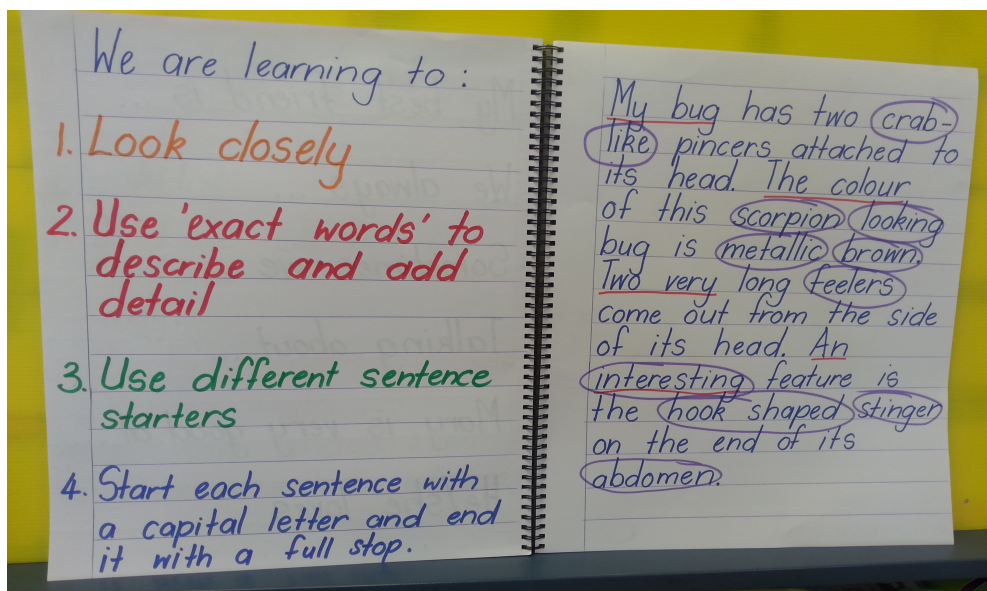 We are learning to:
1. Look closely
2. Use 'exact words' to
describe and add
detail
3. Use different sentence
starters
4. Start each sentence with
a capital letter and end
it with a full stop.
My bug has two crab-
like pincers attached to
its head. The colour
of this scorpion looking
bug is metallic brown.
Two very long feelers
come out from the side
of its head. An
interesting feature is
the hook shaped stinger
on the end of its
abdomen.